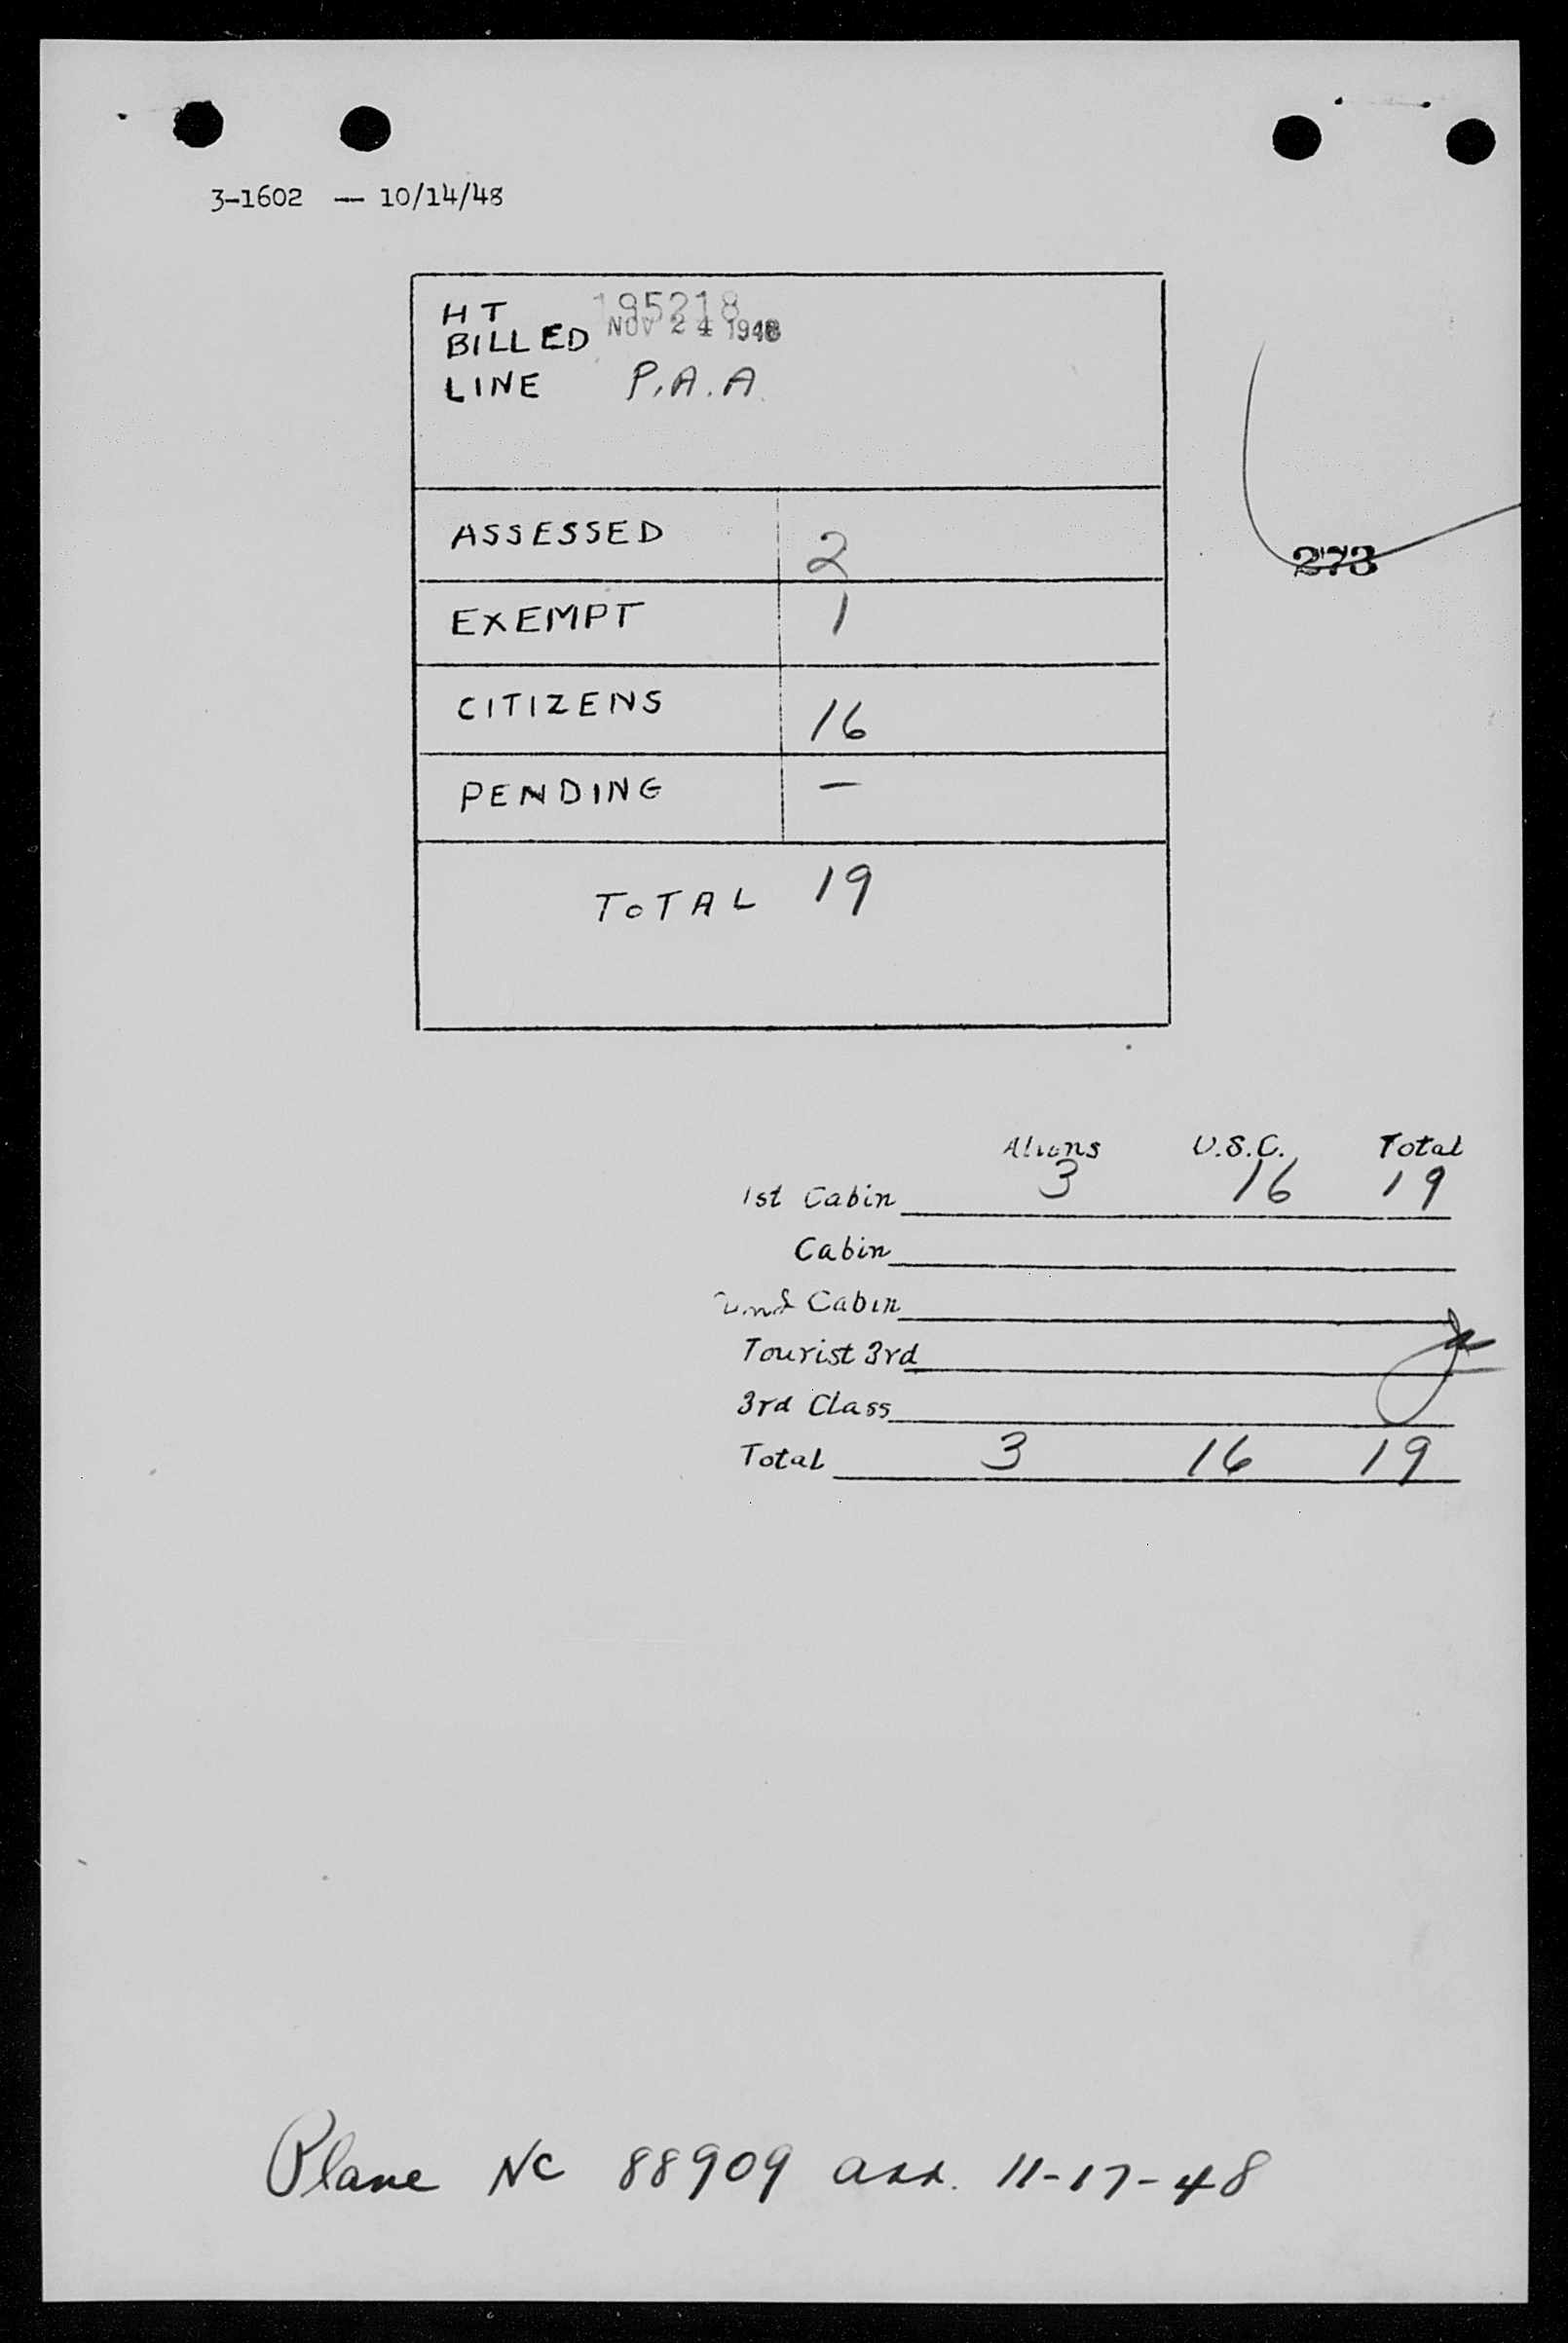 3-1602 — 10/14/48
HT 195218
BILLED NOV 24 1948
LINE P.A.A.
273
ASSESSED 2
EXEMPT 1
CITIZENS 16
PENDING —
TOTAL 19
Aliens U.S.C. Total
1st Cabin 3 16 19
Cabin
2nd Cabin
Tourist 3rd
3rd Class
Total 3 16 19
Plane NC 88909 arr. 11-17-48